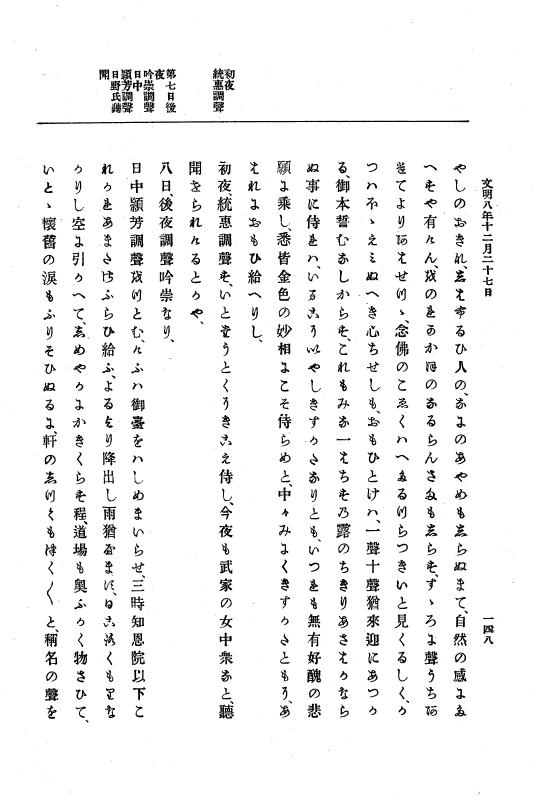 文明八年十二月二十七日
一四八
初夜
統惠調聲
第七日後
夜
吟崇調聲
日中
頴芳調聲
日野氏聽
聞
やしのおきな、しはふるひ人の、なにのあやめもしらぬまて、自然の感にた
へすや有けん、かほのなるらんさまもしらす、すゝろに聲うちあ
けてよりあはせつゝ、念佛のこゑくはへたるつらつきいと見くるしく、か
つハほゝえミぬへき心ちせしも、おもひとけハ、一聲十聲猶來迎にあつか
る、御本誓むなしからす、これもみな一はちすの露のちきりあさはかなら
ぬ事に侍れハ、いやしきすかたなりとも、いつれも無有好醜の悲
願に乘し、悉皆金色の妙相にこそ侍らめと、中々みにくきすかたともゝ、あ
はれにおもひ給へりし、
初夜、統惠調聲す、いとたうとくきこえ侍し、今夜も武家の女中衆なと、聽
聞せられけるとかや、
八日、後夜調聲吟崇なり、
日中頴芳調聲つとむ、けふハ御臺をハしめまいらせ、三時知恩院以下こ
れかれあまたさふらひ給ふ、よるより降出し雨猶をやます、日ころくもりな
かりし空に引かへて、しめやかにかきくらす程、道場も奥ふかく物さひて、
いとゝ懷舊の涙もふりそひぬるに、軒のしつくもつく〳〵と、稱名の聲を